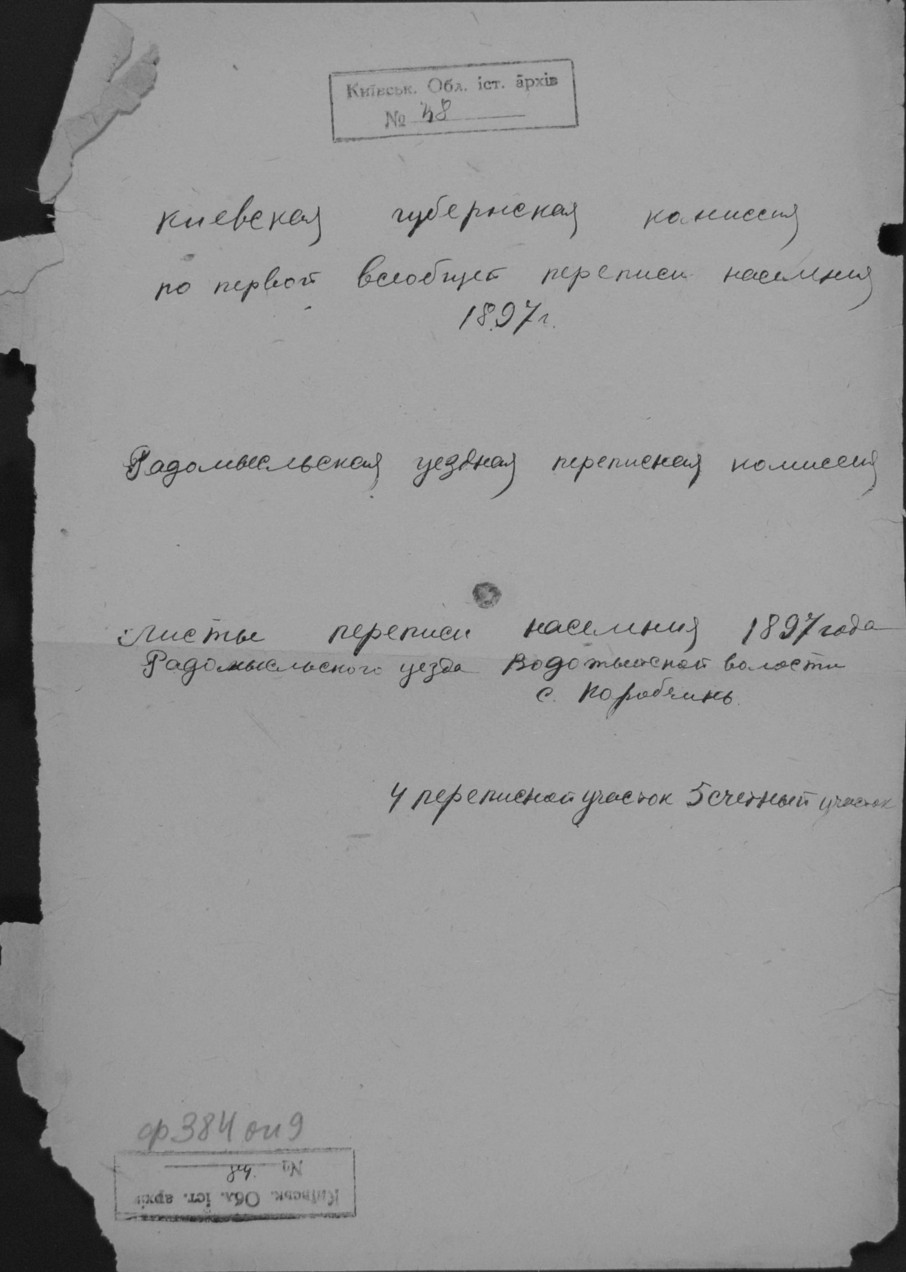 Київськ. Обл. іст. архів
№ 48
Киевская губернская комиссия
по первой всеобщей переписи населения
1897 г.
Радомысльская уездная переписная комиссия
Листы переписи населения 1897 года
Радомысльского уезда Водотыйской волости
с. Коробчинь
4 переписной участок 5 счетный участок
ф 384 оп 9
№ 48
Київськ. Обл. іст. архів